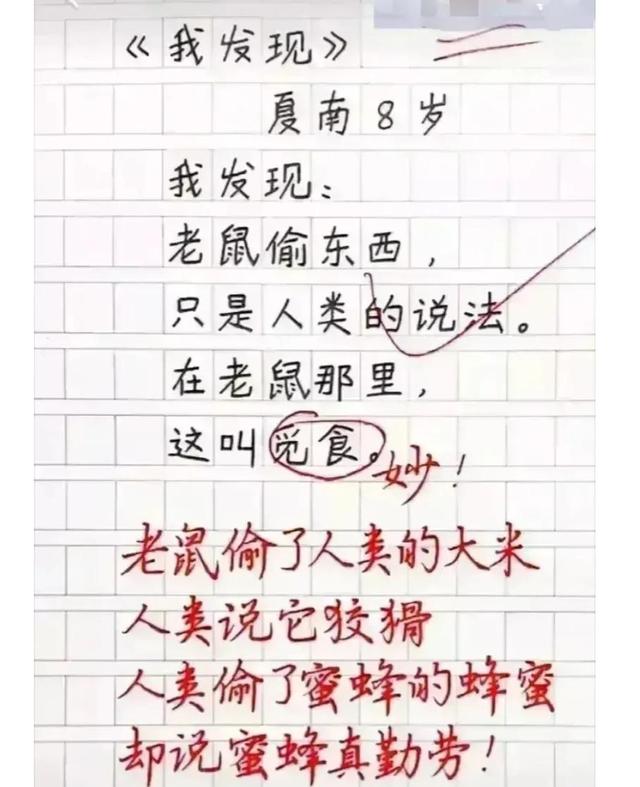 《我发现》
夏南 8 岁
我发现：
老鼠偷东西，
只是人类的说法。
在老鼠那里，
这叫觅食。
妙！
老鼠偷了人类的大米
人类说它狡猾
人类偷了蜜蜂的蜂蜜
却说蜜蜂真勤劳！